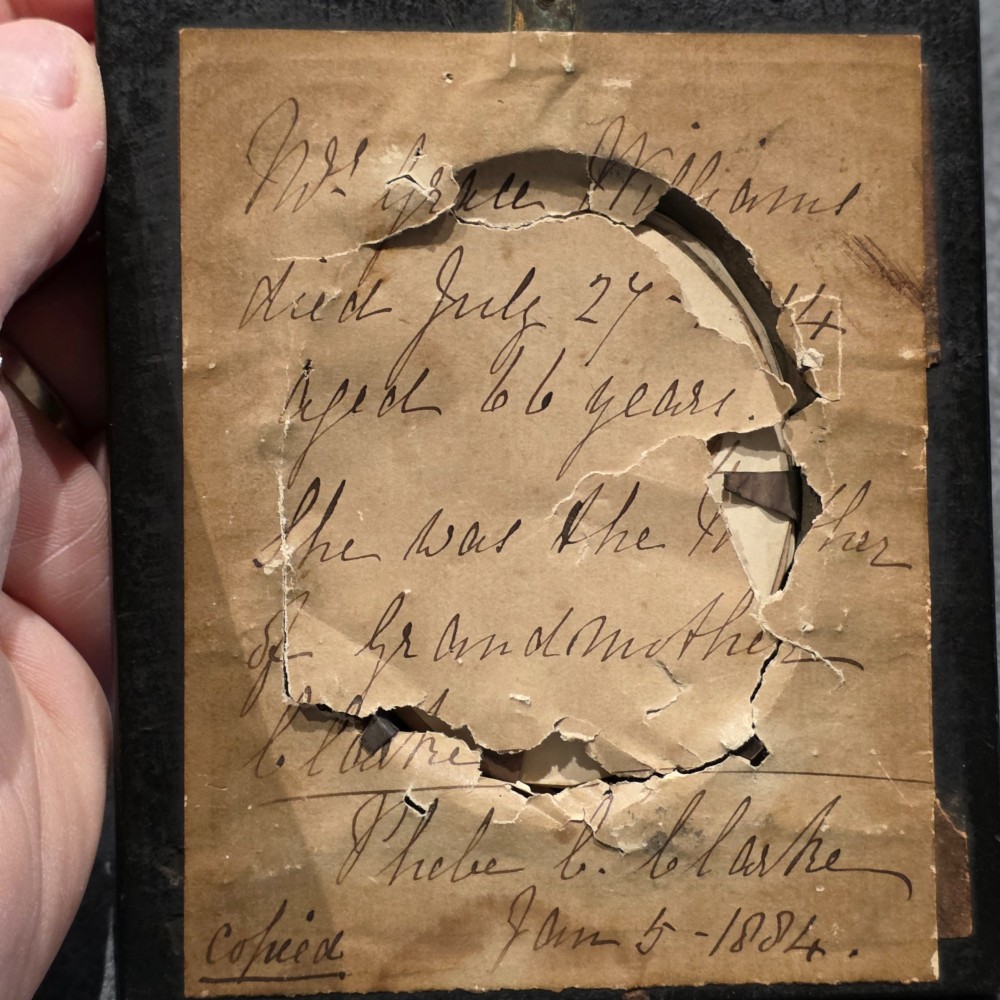 Mrs Grace Williams
died July 27 - 4
aged 66 years.
She was the
of Grandmother
Clarke
Phebe C. Clarke
copied Jan 5 - 1884.